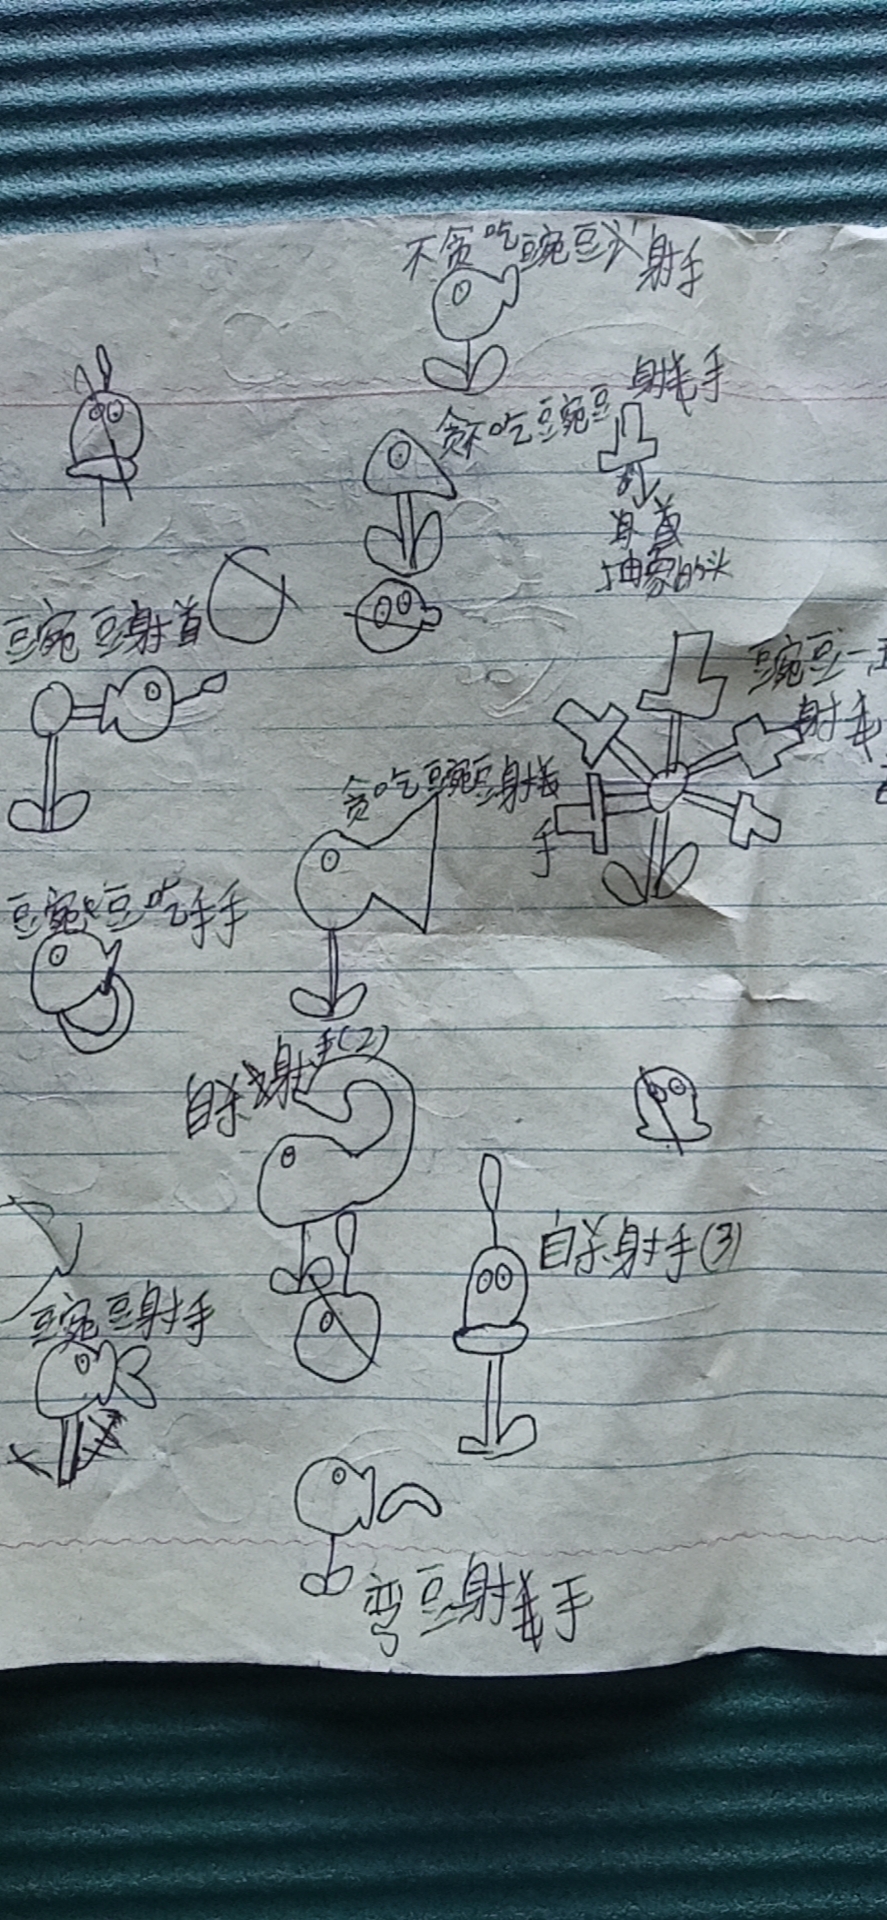 不贪吃豌豆射手
贪不吃豌豆
射手
身首
抽象的头
豌豆射首
豌豆
射手
贪吃豌豆射
手
豌豆吃手手
自杀射手(2)
自杀射手(3)
豌豆射手
弯豆射手